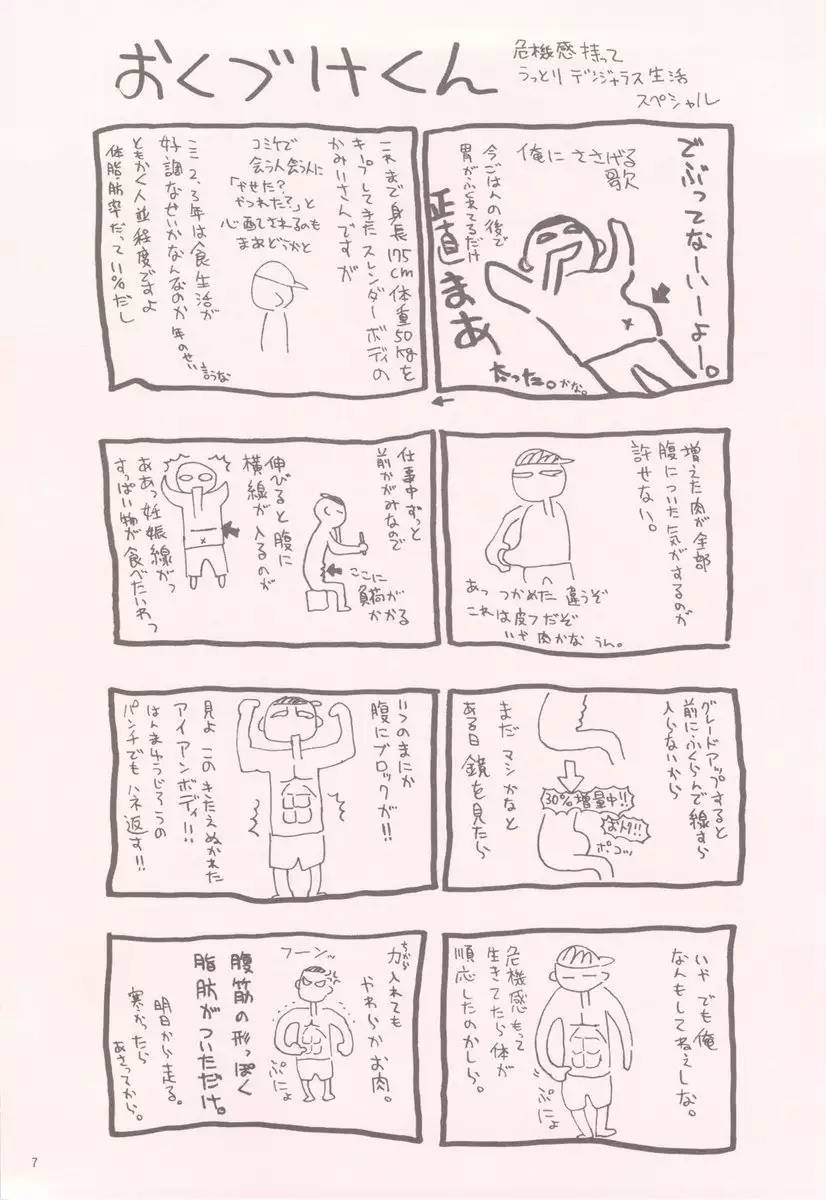 おくづけくん
危機感持って
うっとりデンジャラス生活
スペシャル
でぶってなーいーよー。
俺にささげる
歌
今ごはんの後で
胃がふくれてるだけ
正直まあ
太った。かな。
これまで身長175cm体重50kgを
キープしてきたスレンダーボディの
かみいさんですが
コミケで
会う人会う人に
「やせた?
やつれた?」と
心配されるのも
まあどうかと
ここ2、3年は食生活が
好調なせいかなんなのか年のせい
言うな
ともかく人並程度ですよ
体脂肪率だって11%だし
増えた肉が全部
腹についた気がするのが
許せない。
あっ つかめた 違うぞ
これは皮フだぞ
いや 肉かな うん。
仕事中ずっと
前かがみなので
ここに
負荷が
かかる
伸びると腹に
横線が入るのが
ああっ妊娠線がっ
すっぱい物が食べたいわっ
グレードアップすると
前にふくらんで線すら
入らないから
まだマシかなと
ある日鏡を見たら
30%増量中!!
おトク!!
ポコッ
いつのまにか
腹にブロックが!!
見よ このきたえぬかれた
アイアンボディ!!
はんまゆうじろうの
パンチでもハネ返す!!
いや でも俺
なんもしてねえしな。
危機感もって
生きてたら体が
順応したのかしら。
ぷにょ
力入れても
ちから
やわらかお肉。
フーンッ
ぷにょ
腹筋の形っぽく
脂肪がついただけ。
明日から走る。
寒かったら
あさってから。
7